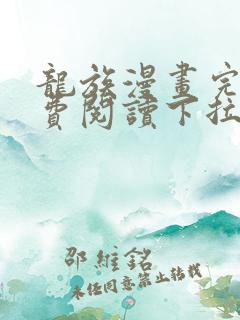 龍族漫畫完
費閱讀下拉
邵維銘
未經同意禁止轉載